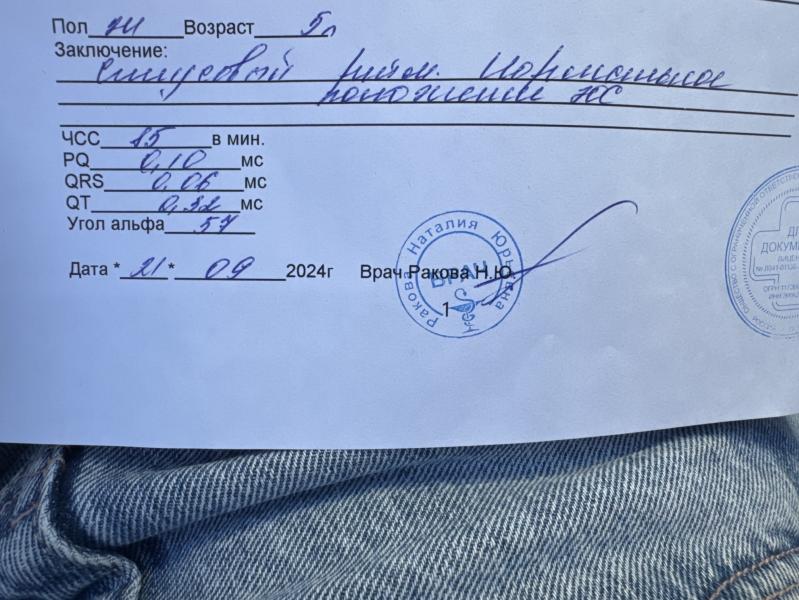 Пол ж Возраст 5л
Заключение:
Синусовый ритм. Нормальное
положение ЭОС
ЧСС 85 в мин.
PQ 0,10 мс
QRS 0,06 мс
QT 0,32 мс
Угол альфа 57
Дата " 21 " 09 2024г Врач Ракова Н.Ю.
Ракова Наталия Юрьевна
ВРАЧ
1
ОБЩЕСТВО С ОГРАНИЧЕННОЙ ОТВЕТСТВЕННО
ДЛ
ДОКУМЕ
ЛИЦЕН